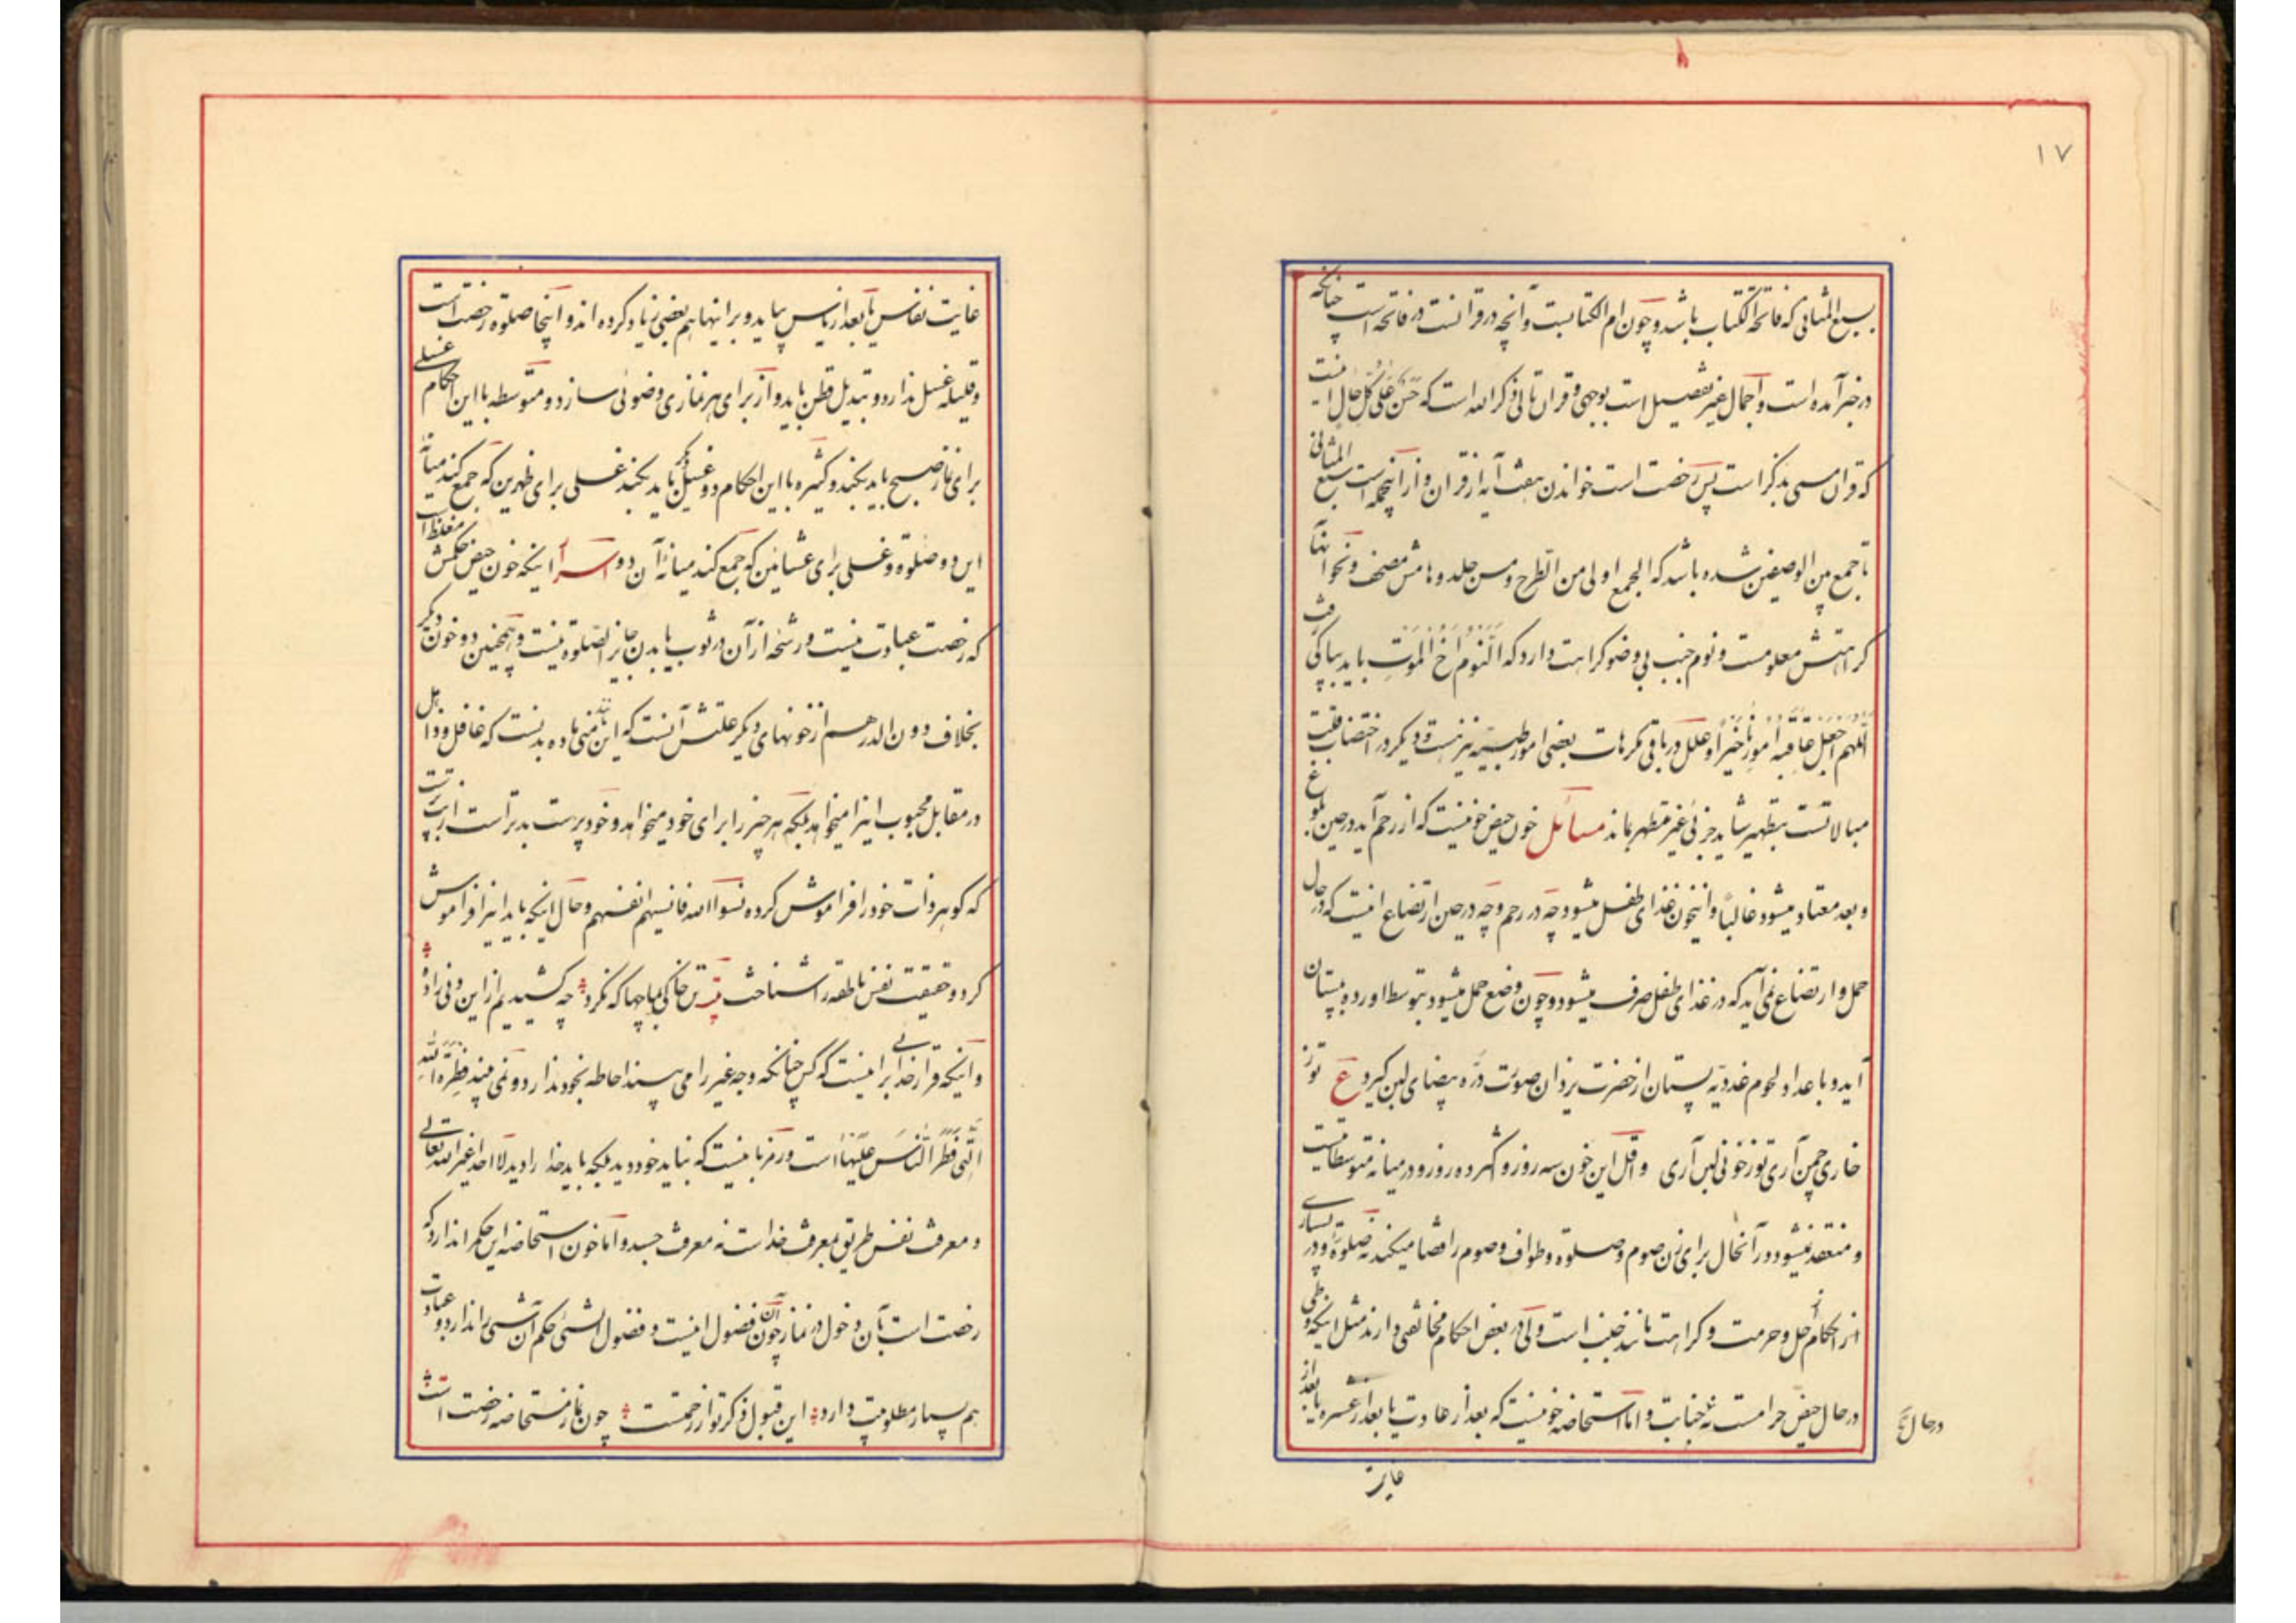 ١٧
بسبع المثانی که فاتحة الکتاب باشد و چون ام الکتابست و آنچه در قرآنست در فاتحه است چنانکه
در خبر آمده است و اجمال غیر تفصیل است بوجهی و قران تالی ذکر الله است که حَسَن عَلی کُلِّ حال اینست
که قران مسمی بذکر است پس رخصت است خواندن هفت آیه از قران و از آنجمله است سبع المثانی
تا جمع بین الوصفین شده باشد که الجمع اولی من الطرح و مس جلد و هامش مصحف و نحو آنها
کراهتش معلومست و نوم جنب بی وضو کراهت دارد که اَلنَّوم اَخ المَوت باید بپاکی رفت
اَللّهم اجعَل عاقِبَة اُمورِنا خَیراً و علل در باقی مکرهات بعضی امور طبییّه نیز هست و دیگر در اختضاب قلت
مبالاتست بتطهیر شاید جزئی غیر مطهر بماند مسائل خون حیض خونیست که از رحم آید در حین بلوغ
و بعد معتاد میشود غالباً و اینخون غذای طفل میشود چه در رحم و چه در حین ارتضاع اینست که در حال
حمل و ارتضاع نمی آید که در غذای طفل صرف میشود و چون وضع حمل میشود بتوسط اورده به پستان
آید و باعداد لحوم غددیّه پستان از حضرت یزدان صورت درّه بیضای لبن گیرد ع تو ز
خاری چمن آری تو ز خونی لبن آری و اقل این خون سه روز و اکثر ده روز و در میانه متوسطاتیست
و منعقد نمیشود در آنحال برای زن صوم و صلوة و طواف و صوم را قضا میکند نه صلوة و در بسیاری
از احکام حل و حرمت و کراهت مانند جنب است ولی در بعض احکام مخالفتی دارند مثل اینکه وطی
در حال حیض حرامست نه جنابت و اما استحاضه خونیست که بعد از عادت یا بعد از عشره یا بعد از
در حال
غایت
غایت نفاس یا بعد از یاس بیاید و بر اینها هم بعضی زیاد کرده اند و اینجا صلوة رخصت است
و قلیله غسل ندارد و تبدیل قطن باید و از برای هر نمازی وضوئی سازد و متوسطه با این احکام غسلی
برای نماز صبح باید بکند و کثیره با این احکام دو غسل دیگر باید بکند غسلی برای ظهرین که جمع کند میانهٔ
این دو صلوة و غسلی برای عشائین که جمع کند میانهٔ آن دو اسرآ اینکه خون حیض حکمش مغلظ است
که رخصت عبادت نیست و رشحه از آن در ثوب یا بدن جایز الصلوة نیست و همچنین دو خون دیگر
بخلاف دون الدرهم از خونهای دیگر علتش آنست که این مایهٔ منی ماده بدنست که غافل و ذاهل
در مقابل محبوب اینرا میخواهد بلکه هر چیز را برای خود میخواهد و خود پرست بدتر است از بت پرست
که گوهر ذات خود را فراموش کرده نسوا الله فانسیهم انفسهم و حال اینکه باید اینرا فراموش
کرد و حقیقت نفس ناطقه را شناخت تن خاکی بما چها که نکرد چه کشیدیم از این دنی زاده
و اینکه قرار خدائی بر اینست که کس چنانکه وجه غیر را می بیند احاطه بخود ندارد و نمی بیند فِطرَةَ اللهِ
الَّتی فَطَرَ النّاسَ عَلَیها است و رمز با نیست که نباید خود دید بلکه باید خدا را دید لا احداً غیر الله تعالی
و معرفت نفس طریق معرفت خداست نه معرفت جسد و اما خون استحاضه این حکم را ندارد که
رخصت است با آن دخول در نماز چون آن فضول اینست و فضول الشیٔ حکم آن شیٔ را ندارد و عبادت
هم بسیار مطلوبیت دارد این قبول ذکر تو از رحمتست چون نماز مستحاضه رخصت است